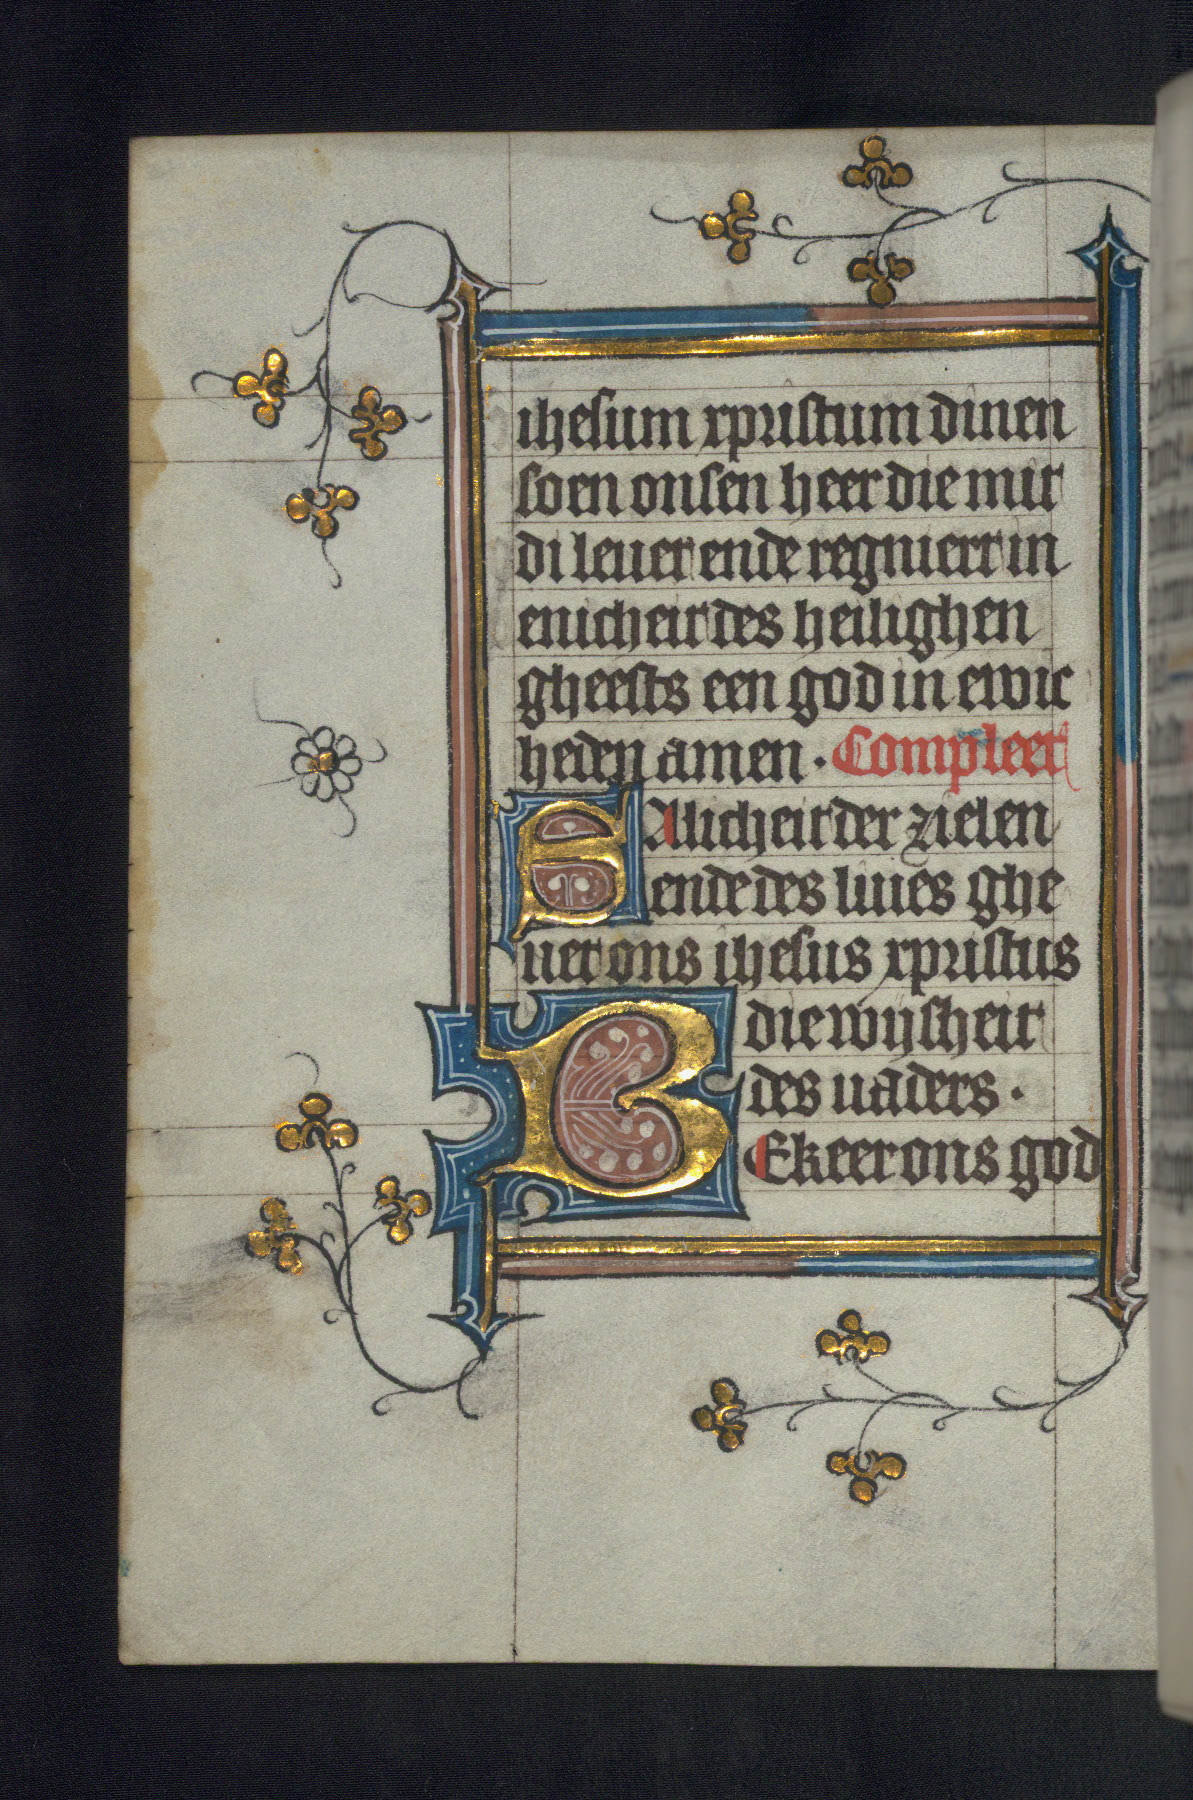 ihesum xpristum dinen
soen onsen heer die mit
di leuet ende regniert in
enicheit des heilighen
gheests een god in ewic
heden amen · Compleet
SAlicheit der zielen
ende des liues ghe
uet ons ihesus xpristus
die wijsheit
des uaders ·
BEkeer ons god